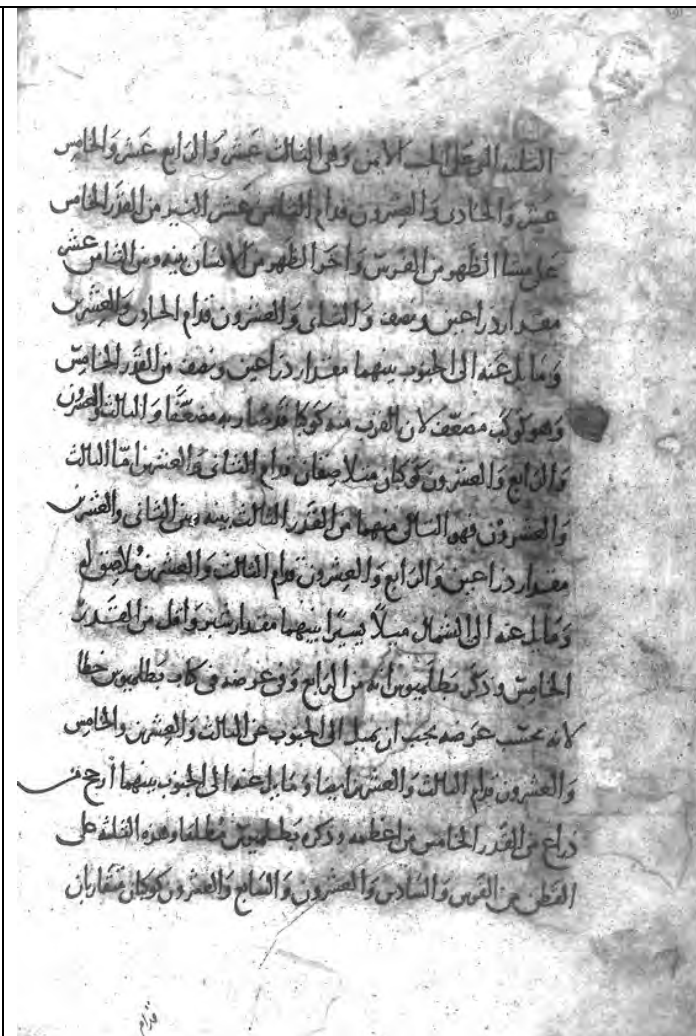 الثلثه التى على الجنب الايمن وهى الثالث عشر والرابع عشر والخامس
عشر والحادى والعشرون قدام الثامن عشر النير من القدر الخامس
على منشا الظهر من الفرس واخر الظهر من الانسان بينه وبين الثامن عشر
مقدار ذراعين ونصف والثانى والعشرون قدام الحادى والعشرين
ومايل عنه الى الجنوب بينهما مقدار ذراعين ونصف من القدر الخامس
وهو كوكب مضعف لان القرب منه كوكبا قد صار به مضعفا والثالث والعشرون
والرابع والعشرون كوكبان متلاصقان قدام الثانى والعشرين اما الثالث
والعشرون فهو التالى منهما من القدر الثالث بينه وبين الثانى والعشرين
مقدار ذراعين والرابع والعشرون قدام الثالث والعشرين ملاصق له
ومايل عنه الى الشمال ميلا يسيرا بينهما مقدار شبر واقل من القدر
الخامس وذكر بطلميوس انه من الرابع وفى عرضه فى كتاب بطلميوس خطا
لانه بحسب عرضه يجب ان يميل الى الجنوب عن الثالث والعشرين والخامس
والعشرون قدام الثالث والعشرين ايضا ومايل عنه الى الجنوب بينهما ارجح من
ذراع من القدر الخامس من اعظمه وذكره بطلميوس مطلقا وهذه الثلثه على
القطن من الفرس والسادس والعشرون والسابع والعشرون كوكبان متقاربان
قدام